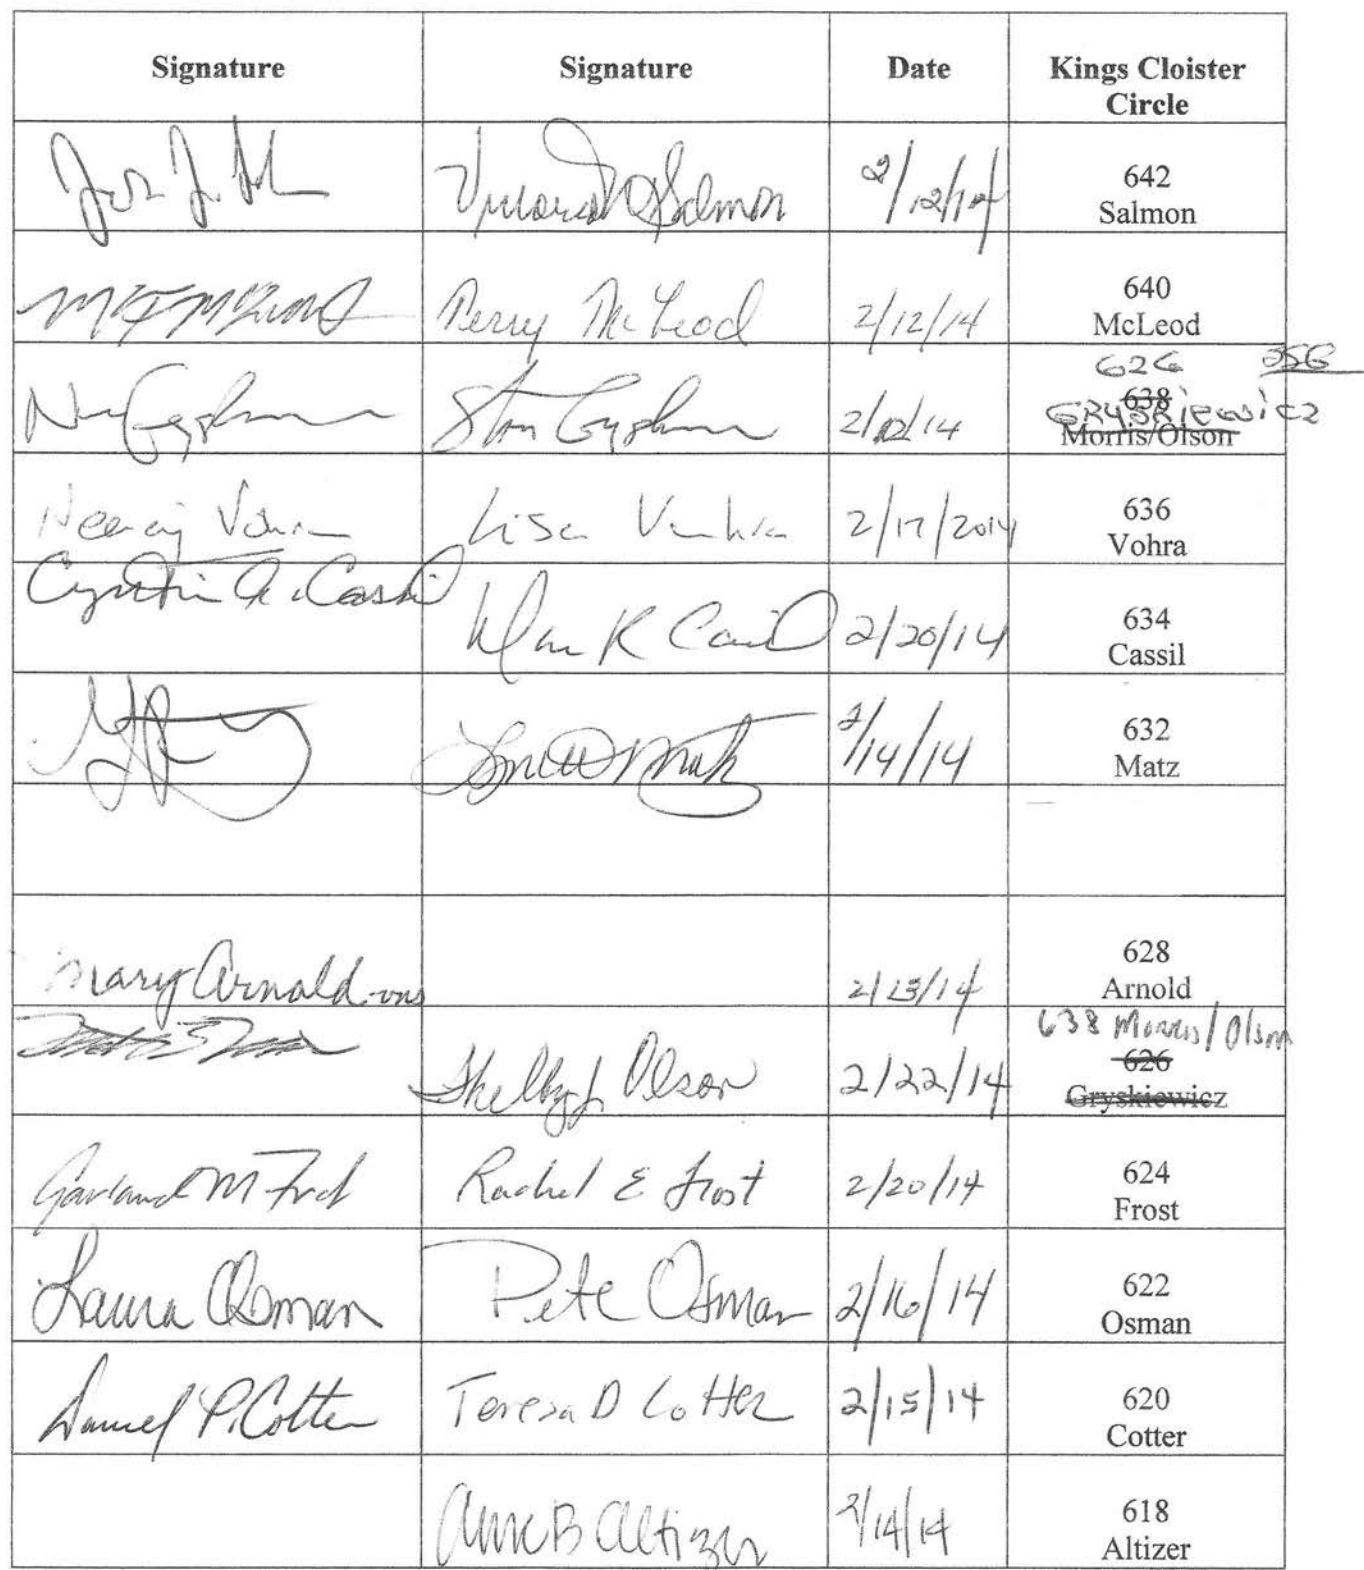 Signature Signature Date Kings Cloister Circle
Salmon 2/12/14 642
Salmon
Perry McLeod 2/12/14 640
McLeod
626
Stan 2/12/14 638
Gryskiewicz
Morris/Olson
Neeraj Vohra Lisa Vohra 2/17/2014 636
Vohra
Cynthia A. Cassil Mark R Cassil 2/20/14 634
Cassil
Matz 2/14/14 632
Matz
Mary Arnold 2/13/14 628
Arnold
638 Morris/Olson
Shelby J. Olson 2/22/14 626
Gryskiewicz
Garland M Frost Rachel E Frost 2/20/14 624
Frost
Laura Osman Pete Osman 2/16/14 622
Osman
Daniel P. Cotter Teresa D Cotter 2/15/14 620
Cotter
Ann B Altizer 2/14/14 618
Altizer